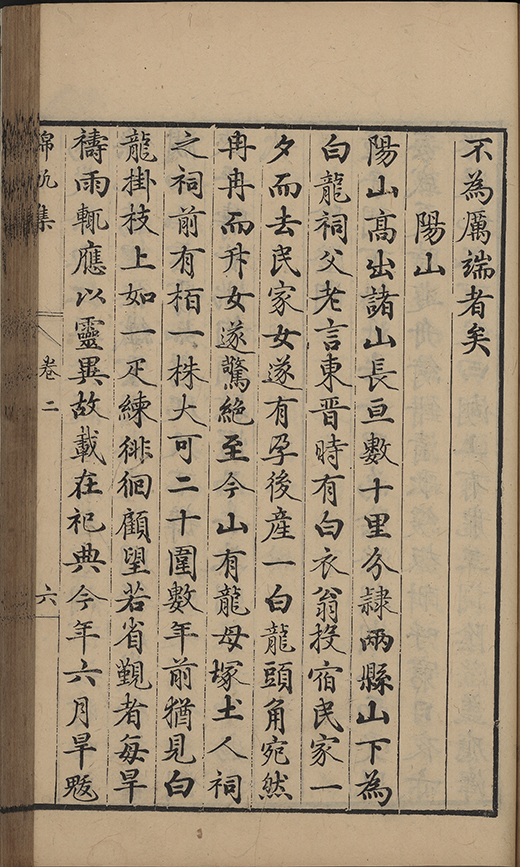 不為厲端者矣
陽山
陽山髙出諸山長亘數十里分隷兩縣山下為
白龍祠父老言東晋時有白衣翁投宿民家一
夕而去民家女遂有孕後産一白龍頭角宛然
冉冉而升女遂驚絶至今山有龍母塚土人祠
之祠前有栢一株大可二十圍數年前猶見白
龍掛枝上如一疋練徘徊顧望若省覲者每旱
禱雨輒應以靈異故載在祀典今年六月旱魃
錦帆集
卷二
六